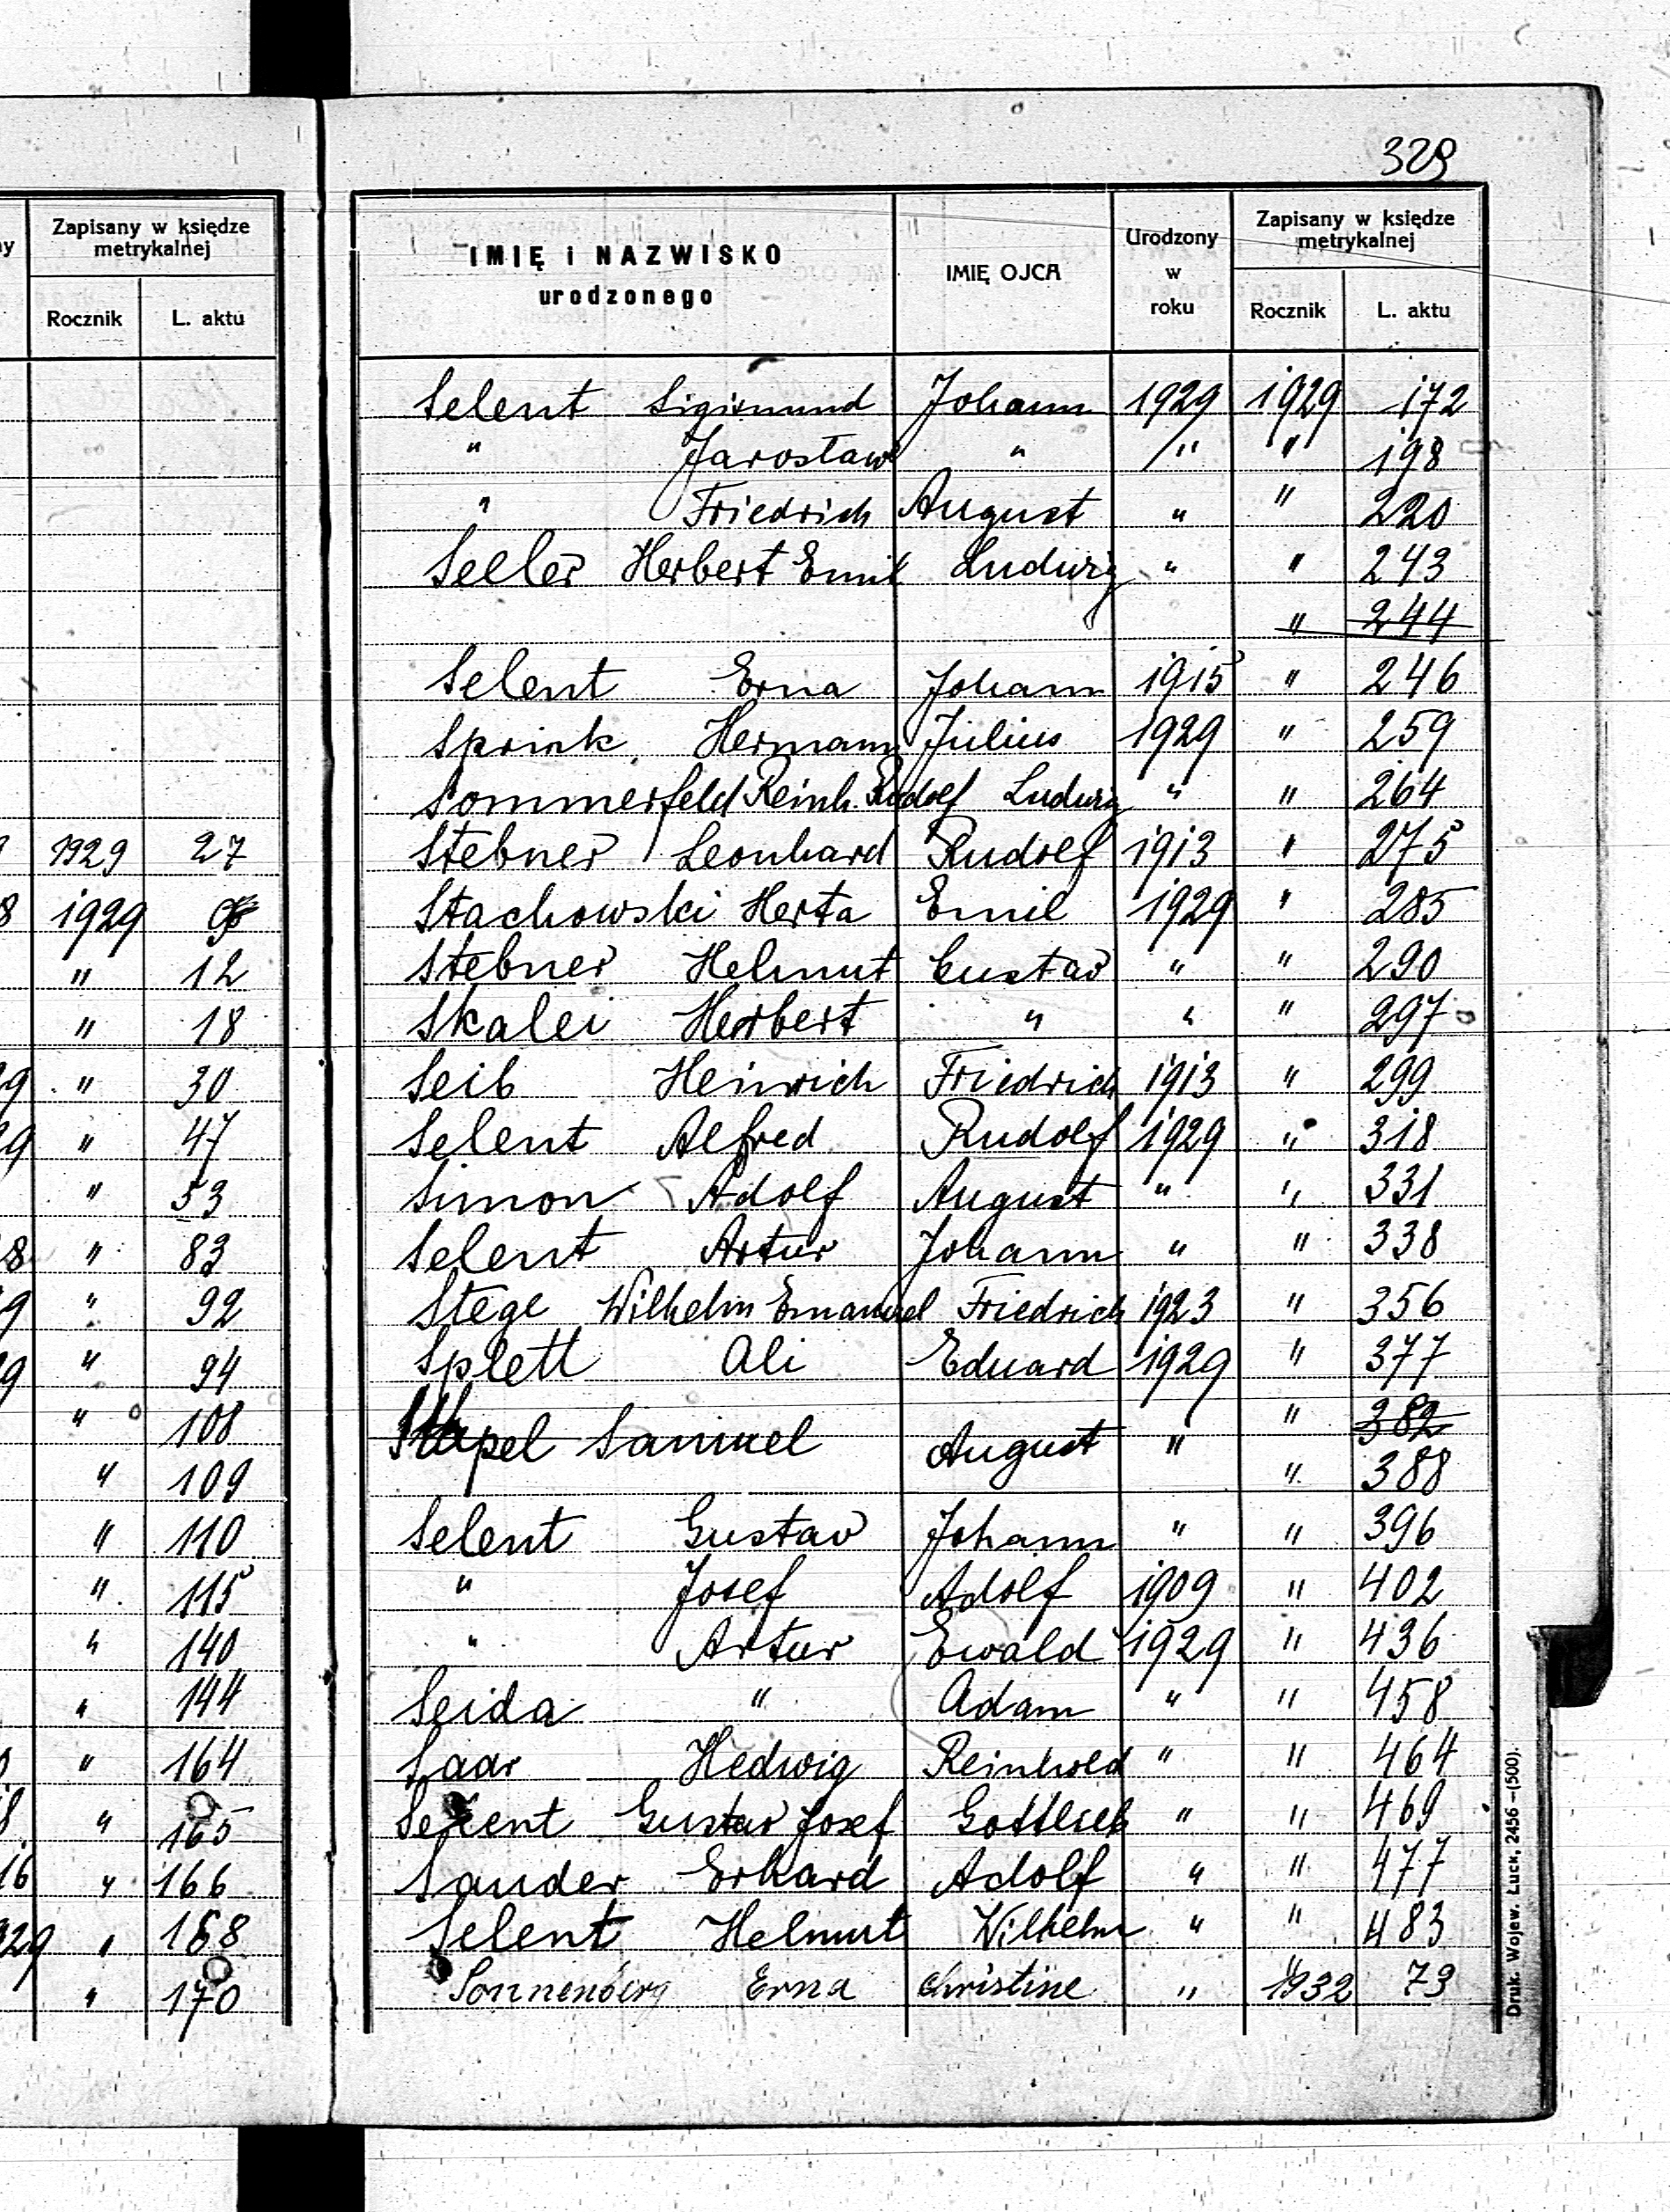 329
y
Zapisany w księdze metrykalnej
Rocznik L. aktu
1929 27
8 1929
" 12
" 18
9 " 30
9 " 47
" 53
8 " 83
9 " 92
9 " 94
" 108
" 109
" 110
" 115
" 140
" 144
" 164
8 " 165
16 " 166
929 " 168
" 170
IMIĘ i NAZWISKO urodzonego
IMIĘ OJCA
Urodzony w roku
Zapisany w księdze metrykalnej
Rocznik L. aktu
Selent Sigismund Johann 1929 1929 172
" Jarosław " " " 198
" Friedrich August " " 220
Seeler Herbert Emil Ludwig " " 243
" 244
Selent Erna Johann 1915 " 246
Sprink Hermann Julius 1929 " 259
Sommerfeld Reinh. Rudolf Ludwig " " 264
Stebner Leonhard Rudolf 1913 " 275
Stachowski Herta Emil 1929 " 285
Stebner Helmut Gustav " " 290
Skalei Herbert " " " 297
Seib Heinrich Friedrich 1913 " 299
Selent Alfred Rudolf 1929 " 318
Simon Adolf August " " 331
Selent Artur Johann " " 338
Stege Wilhelm Emanuel Friedrich 1923 " 356
Splett Ali Eduard 1929 " 377
" 382
Samuel August " " 388
Selent Gustav Johann " " 396
" Josef Adolf 1909 " 402
" Artur Ewald 1929 " 436
Seida " Adam " " 458
Saar Hedwig Reinhold " " 464
Selent Gustav Josef Gottlieb " " 469
Sander Erhard Adolf " " 477
Selent Helmut Wilhelm " " 483
Sonnenberg Erna Christine " 1932 73
Druk. Wojew. Łuck, 2456 –(500).